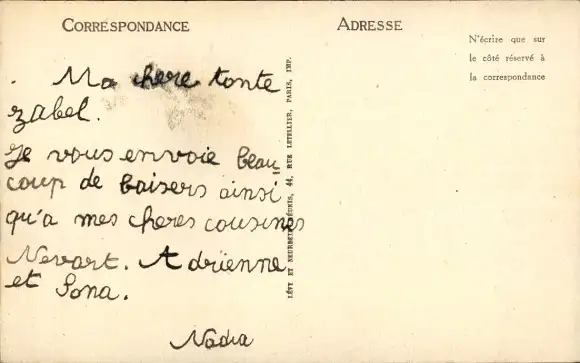 CORRESPONDANCE
Ma chere tante
zabel.
Je vous envoie beau
coup de baisers ainsi
qu'a mes cheres cousines
Nevart. Adrienne
et Sona.
Nadia
LÉVY ET NEURDEIN RÉUNIS, 44, RUE LETELLIER, PARIS, IMP.
ADRESSE
N'écrire que sur
le côté réservé à
la correspondance